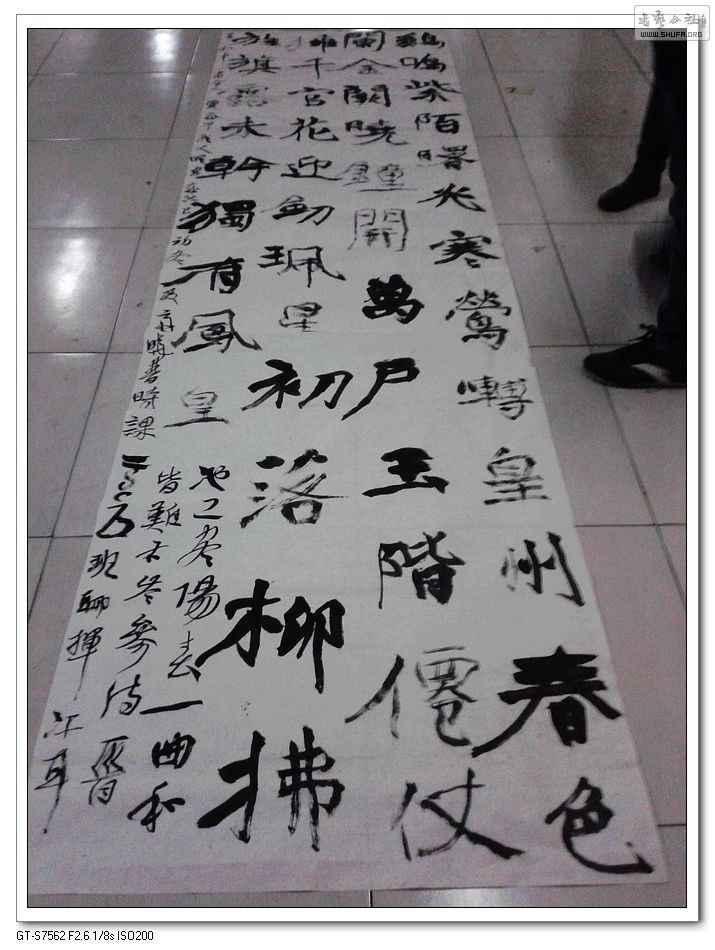 書藝公社
WWW.SHUFA.ORG
鷄鳴紫陌曙光寒鶯囀皇州春色
闌金闕曉鐘開萬戶玉階僊仗
擁千官花迎劍珮星初落柳拂
旌旗露未乾獨有鳳皇
池上客陽春一曲和
皆難岑參詩
初冬
時課
班聊揮
GT-S7562 F2.6 1/8s ISO200